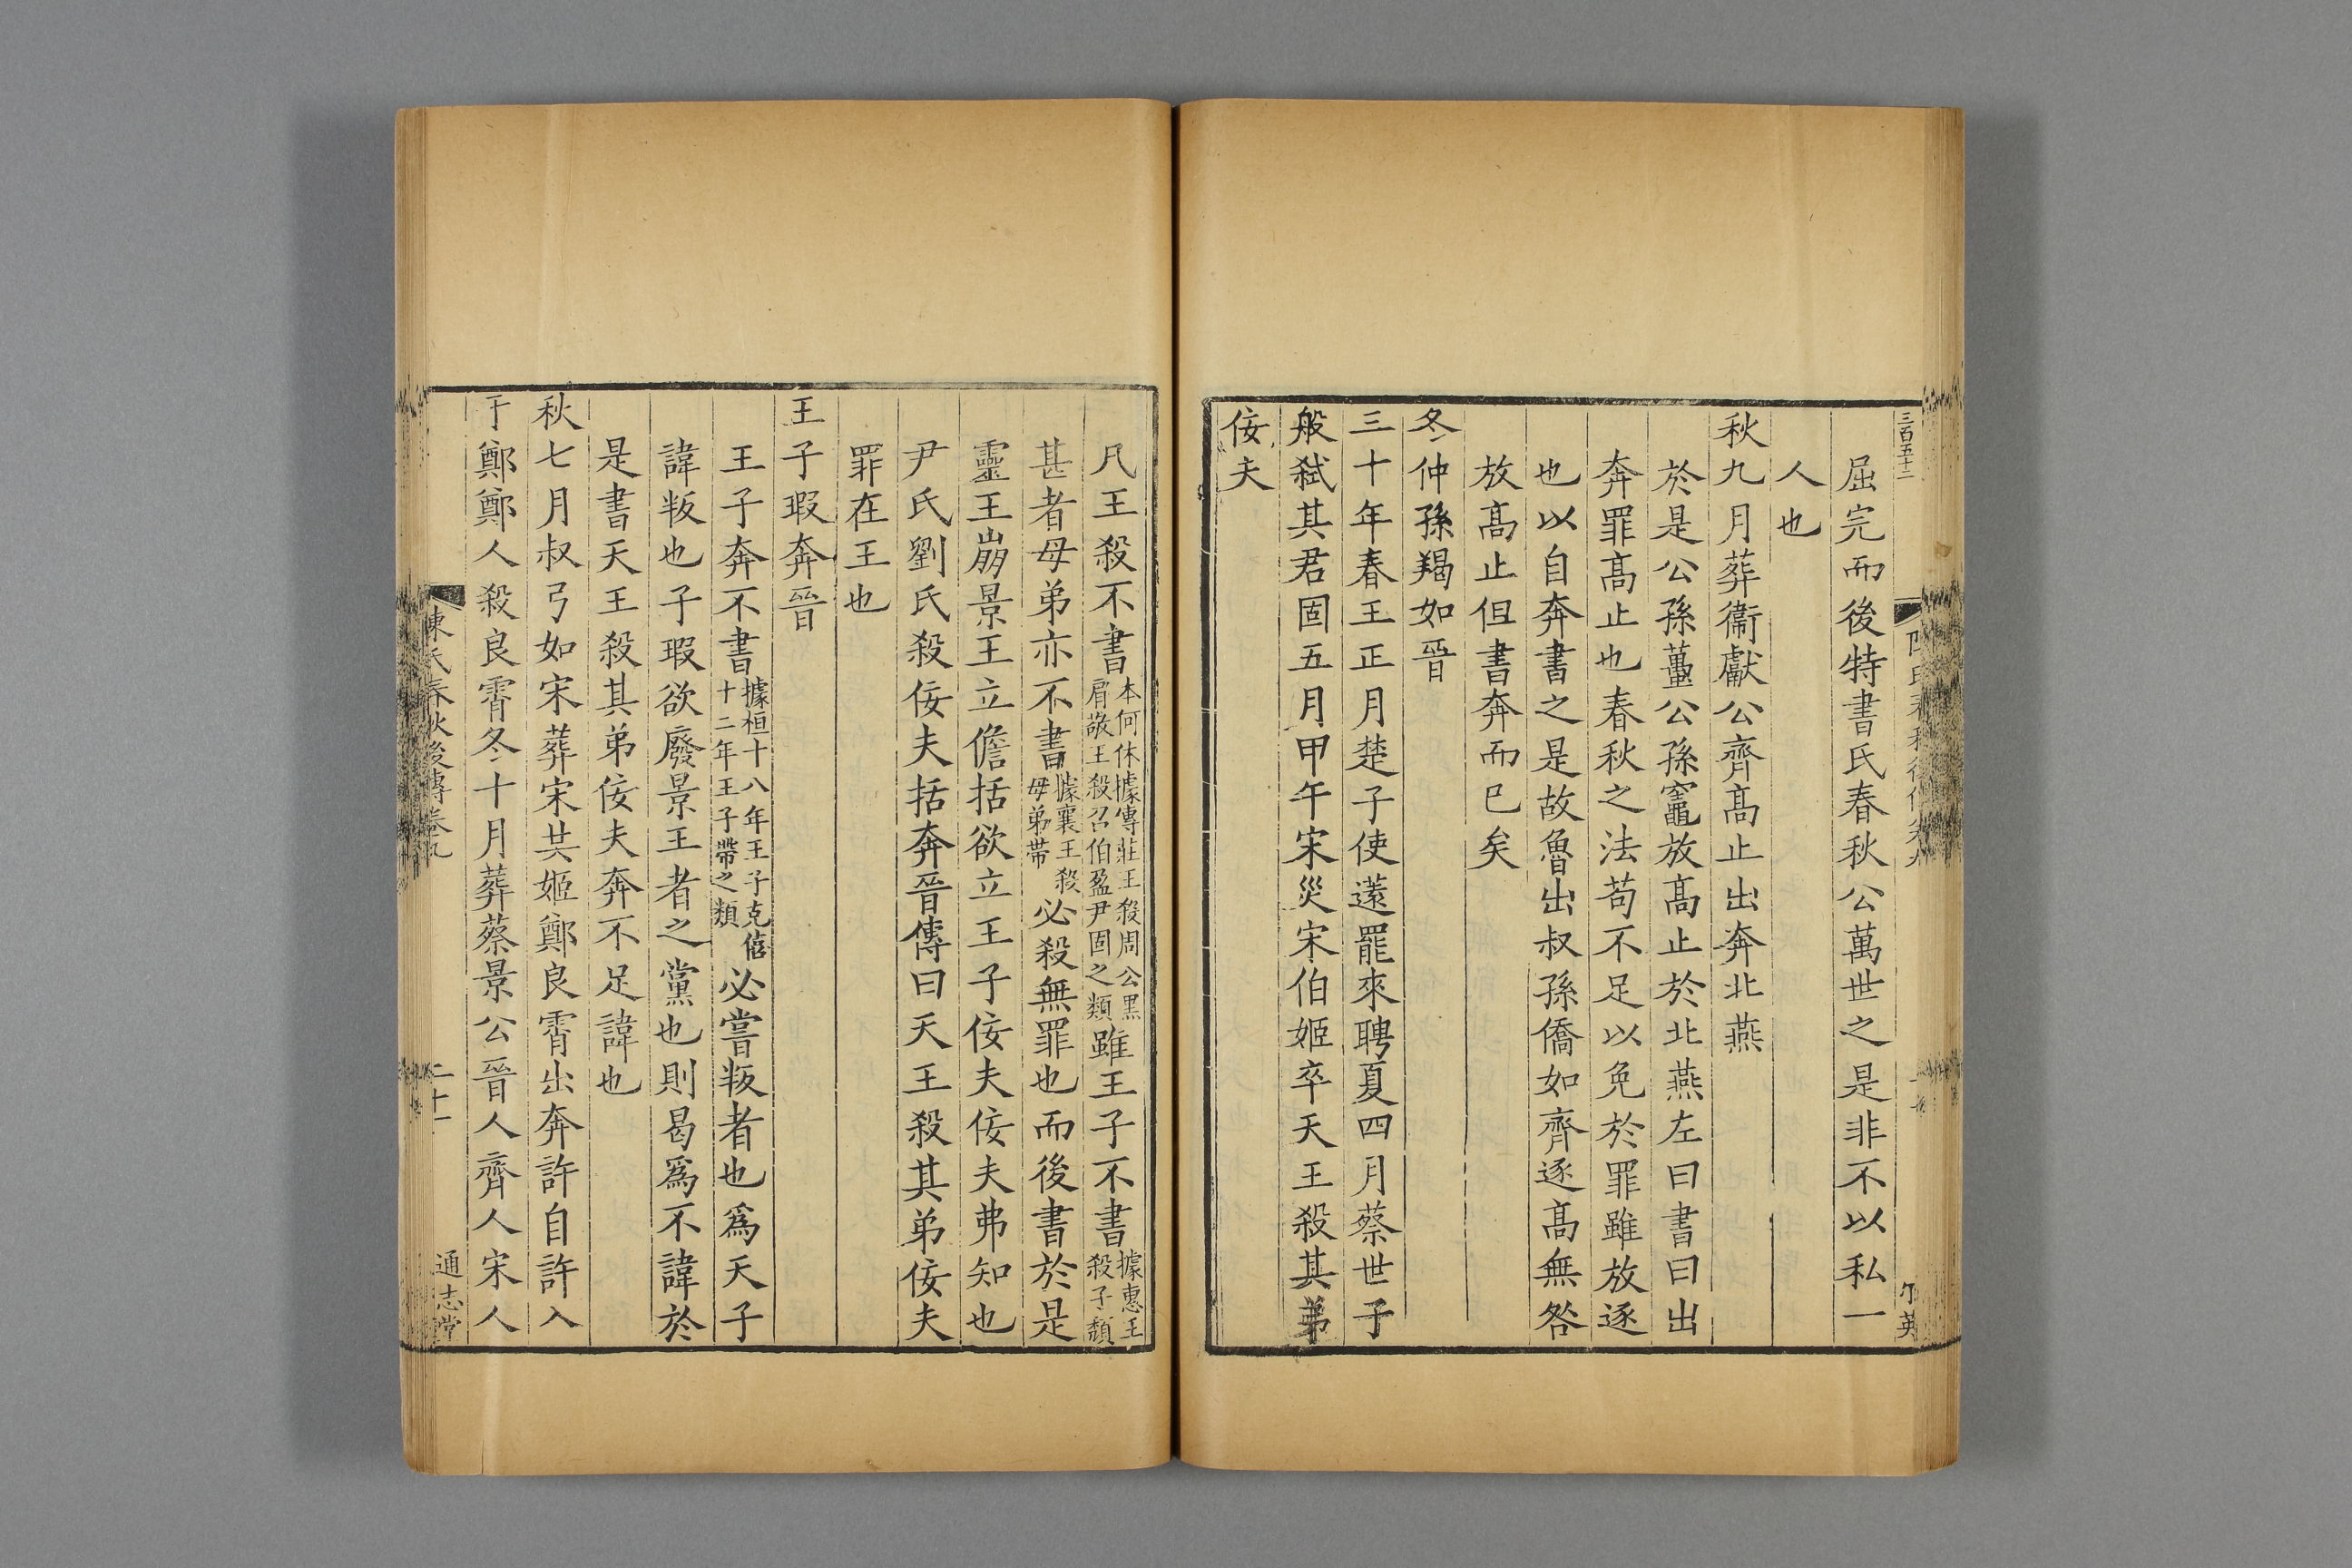 三百五十二
屈完而後特書氏春秋公萬世之是非不以私一
人也
秋九月葬衞獻公齊髙止出奔北燕
於是公孫蠆公孫竈放髙止於北燕左曰書曰出
奔罪髙止也春秋之法苟不足以免於罪雖放逐
也以自奔書之是故魯出叔孫僑如齊逐髙無咎
放髙止但書奔而巳矣
冬仲孫羯如晉
三十年春王正月楚子使薳罷來聘夏四月蔡世子
般弑其君固五月甲午宋災宋伯姬卒天王殺其弟
佞夫
凡王殺不書本何休據傳莊王殺周公黑肩敬王殺召伯盈尹固之類雖王子不書據惠王殺子頹
甚者母弟亦不書據襄王殺母弟帶必殺無罪也而後書於是
靈王崩景王立儋括欲立王子佞夫佞夫弗知也
尹氏劉氏殺佞夫括奔晉傳曰天王殺其弟佞夫
罪在王也
王子瑕奔晉
王子奔不書據桓十八年王子克僖十二年王子帶之類必嘗叛者也爲天子
諱叛也子瑕欲廢景王者之黨也則曷爲不諱於
是書天王殺其弟佞夫奔不足諱也
秋七月叔弓如宋葬宋共姬鄭良霄出奔許自許入
于鄭鄭人殺良霄冬十月葬蔡景公晉人齊人宋人
陳氏春秋後傳卷九
二十一
通志堂